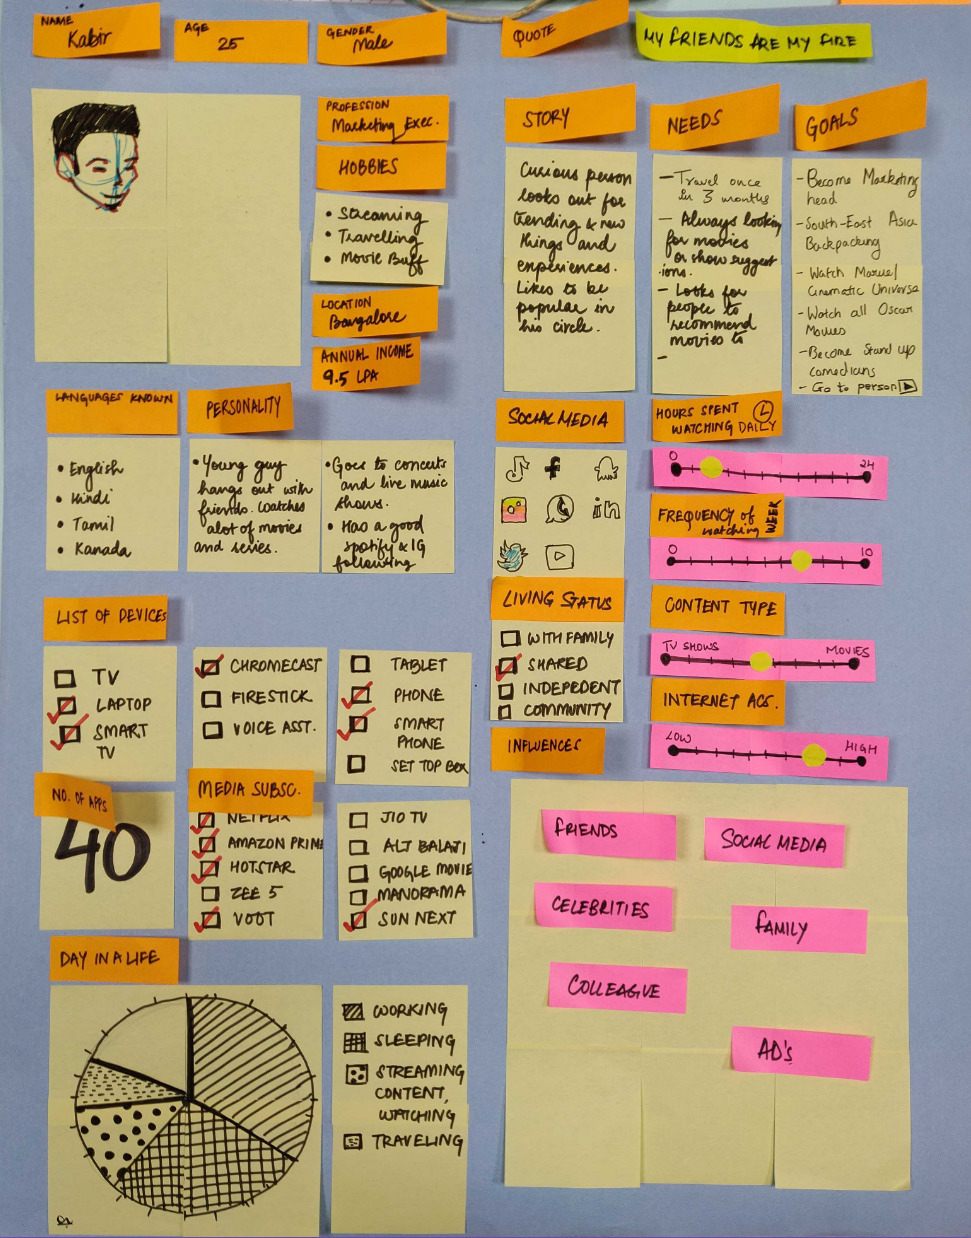 NAME
Kabir
AGE
25
GENDER
Male
QUOTE
MY FRIENDS ARE MY FIRE
PROFESSION
Marketing Exec.
HOBBIES
• Streaming
• Travelling
• Movie Buff
LOCATION
Bangalore
ANNUAL INCOME
9.5 LPA
STORY
Curious person
looks out for
trending & new
things and
experiences.
Likes to be
popular in
his circle.
NEEDS
— Travel once
in 3 months
— Always looking
for movies
or show suggest
ions.
— Looks for
people to
recommend
movies to
—
GOALS
- Become Marketing
head
- South-East Asia
Backpacking
- Watch Marvel
Cinematic Universe
- Watch all Oscar
Movies
- Become Stand up
comedians
- Go to person
LANGUAGES KNOWN
• English
• Hindi
• Tamil
• Kanada
PERSONALITY
• Young guy
hangs out with
friends. watches
alot of movies
and series.
• Goes to concerts
and live music
shows.
• Has a good
spotify & IG
following
SOCIAL MEDIA
in
HOURS SPENT
WATCHING DAILY
0 24
FREQUENCY of
watching WEEK
0 10
LIST OF DEVICES
TV
LAPTOP
SMART
TV
CHROMECAST
FIRESTICK
VOICE ASST.
TABLET
PHONE
SMART
PHONE
SET TOP BOX
LIVING STATUS
WITH FAMILY
SHARED
INDEPEDENT
COMMUNITY
CONTENT TYPE
TV SHOWS MOVIES
INTERNET ACS.
LOW HIGH
NO. OF APPS
40
MEDIA SUBSC.
NETFLIX
AMAZON PRIME
HOTSTAR
ZEE 5
VOOT
JIO TV
ALT BALAJI
GOOGLE MOVIE
MANORAMA
SUN NEXT
INFLUENCES
FRIENDS
SOCIAL MEDIA
CELEBRITIES
FAMILY
COLLEAGUE
AD's
DAY IN A LIFE
WORKING
SLEEPING
STREAMING
CONTENT,
WATCHING
TRAVELING